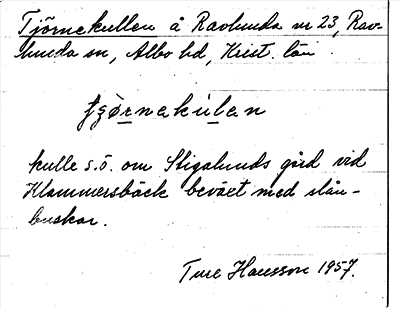 Tjörnekullen å Ravlunda nr 23, Rav-
lunda sn, Albo hd, Krist. län
kulle s.ö. om Stigalunds gård vid
Klammersbäck beväxt med slån-
buskar.
Ture Hansson 1957.